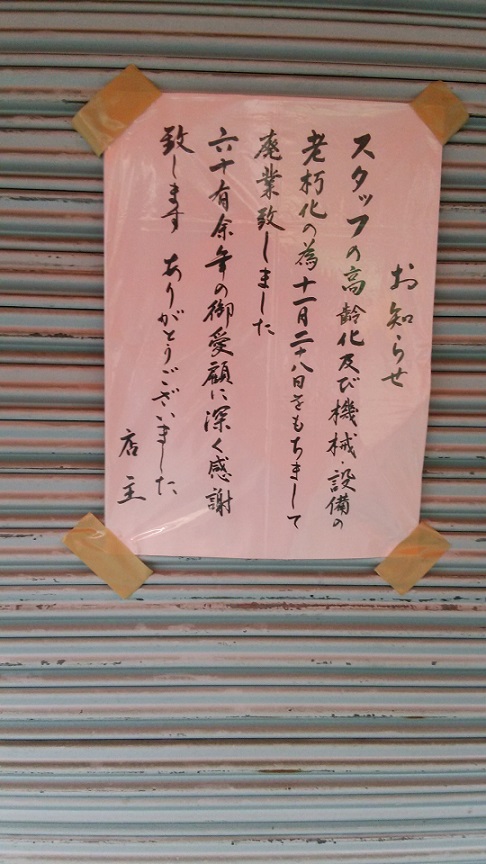 お知らせ
スタッフの高齢化及び機械・設備の
老朽化の為十一月二十八日をもちまして
廃業致しました
六十有余年の御愛顧に深く感謝
致します　ありがとうございました
店主